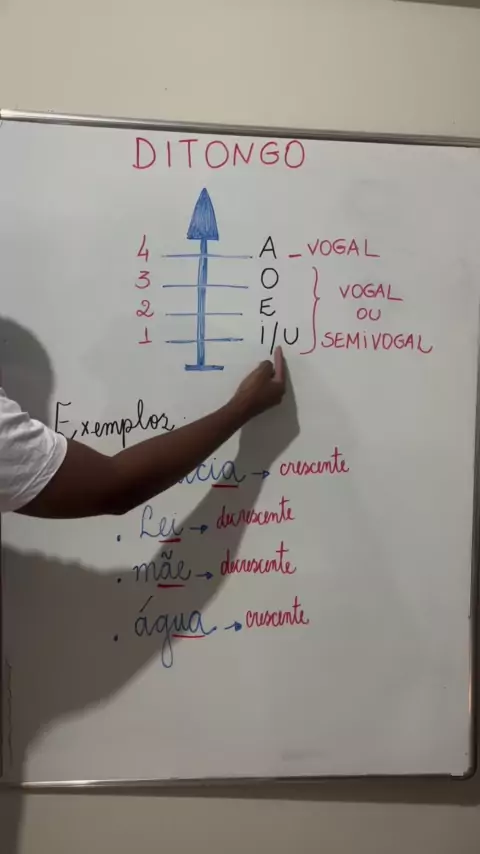 DITONGO
4 A - VOGAL
3 O
2 E
1 i/U
VOGAL
OU
SEMiVOGAL
Exemplos
cia → crescente
. Lei → decrescente
. mãe → decrescente
. água → crescente